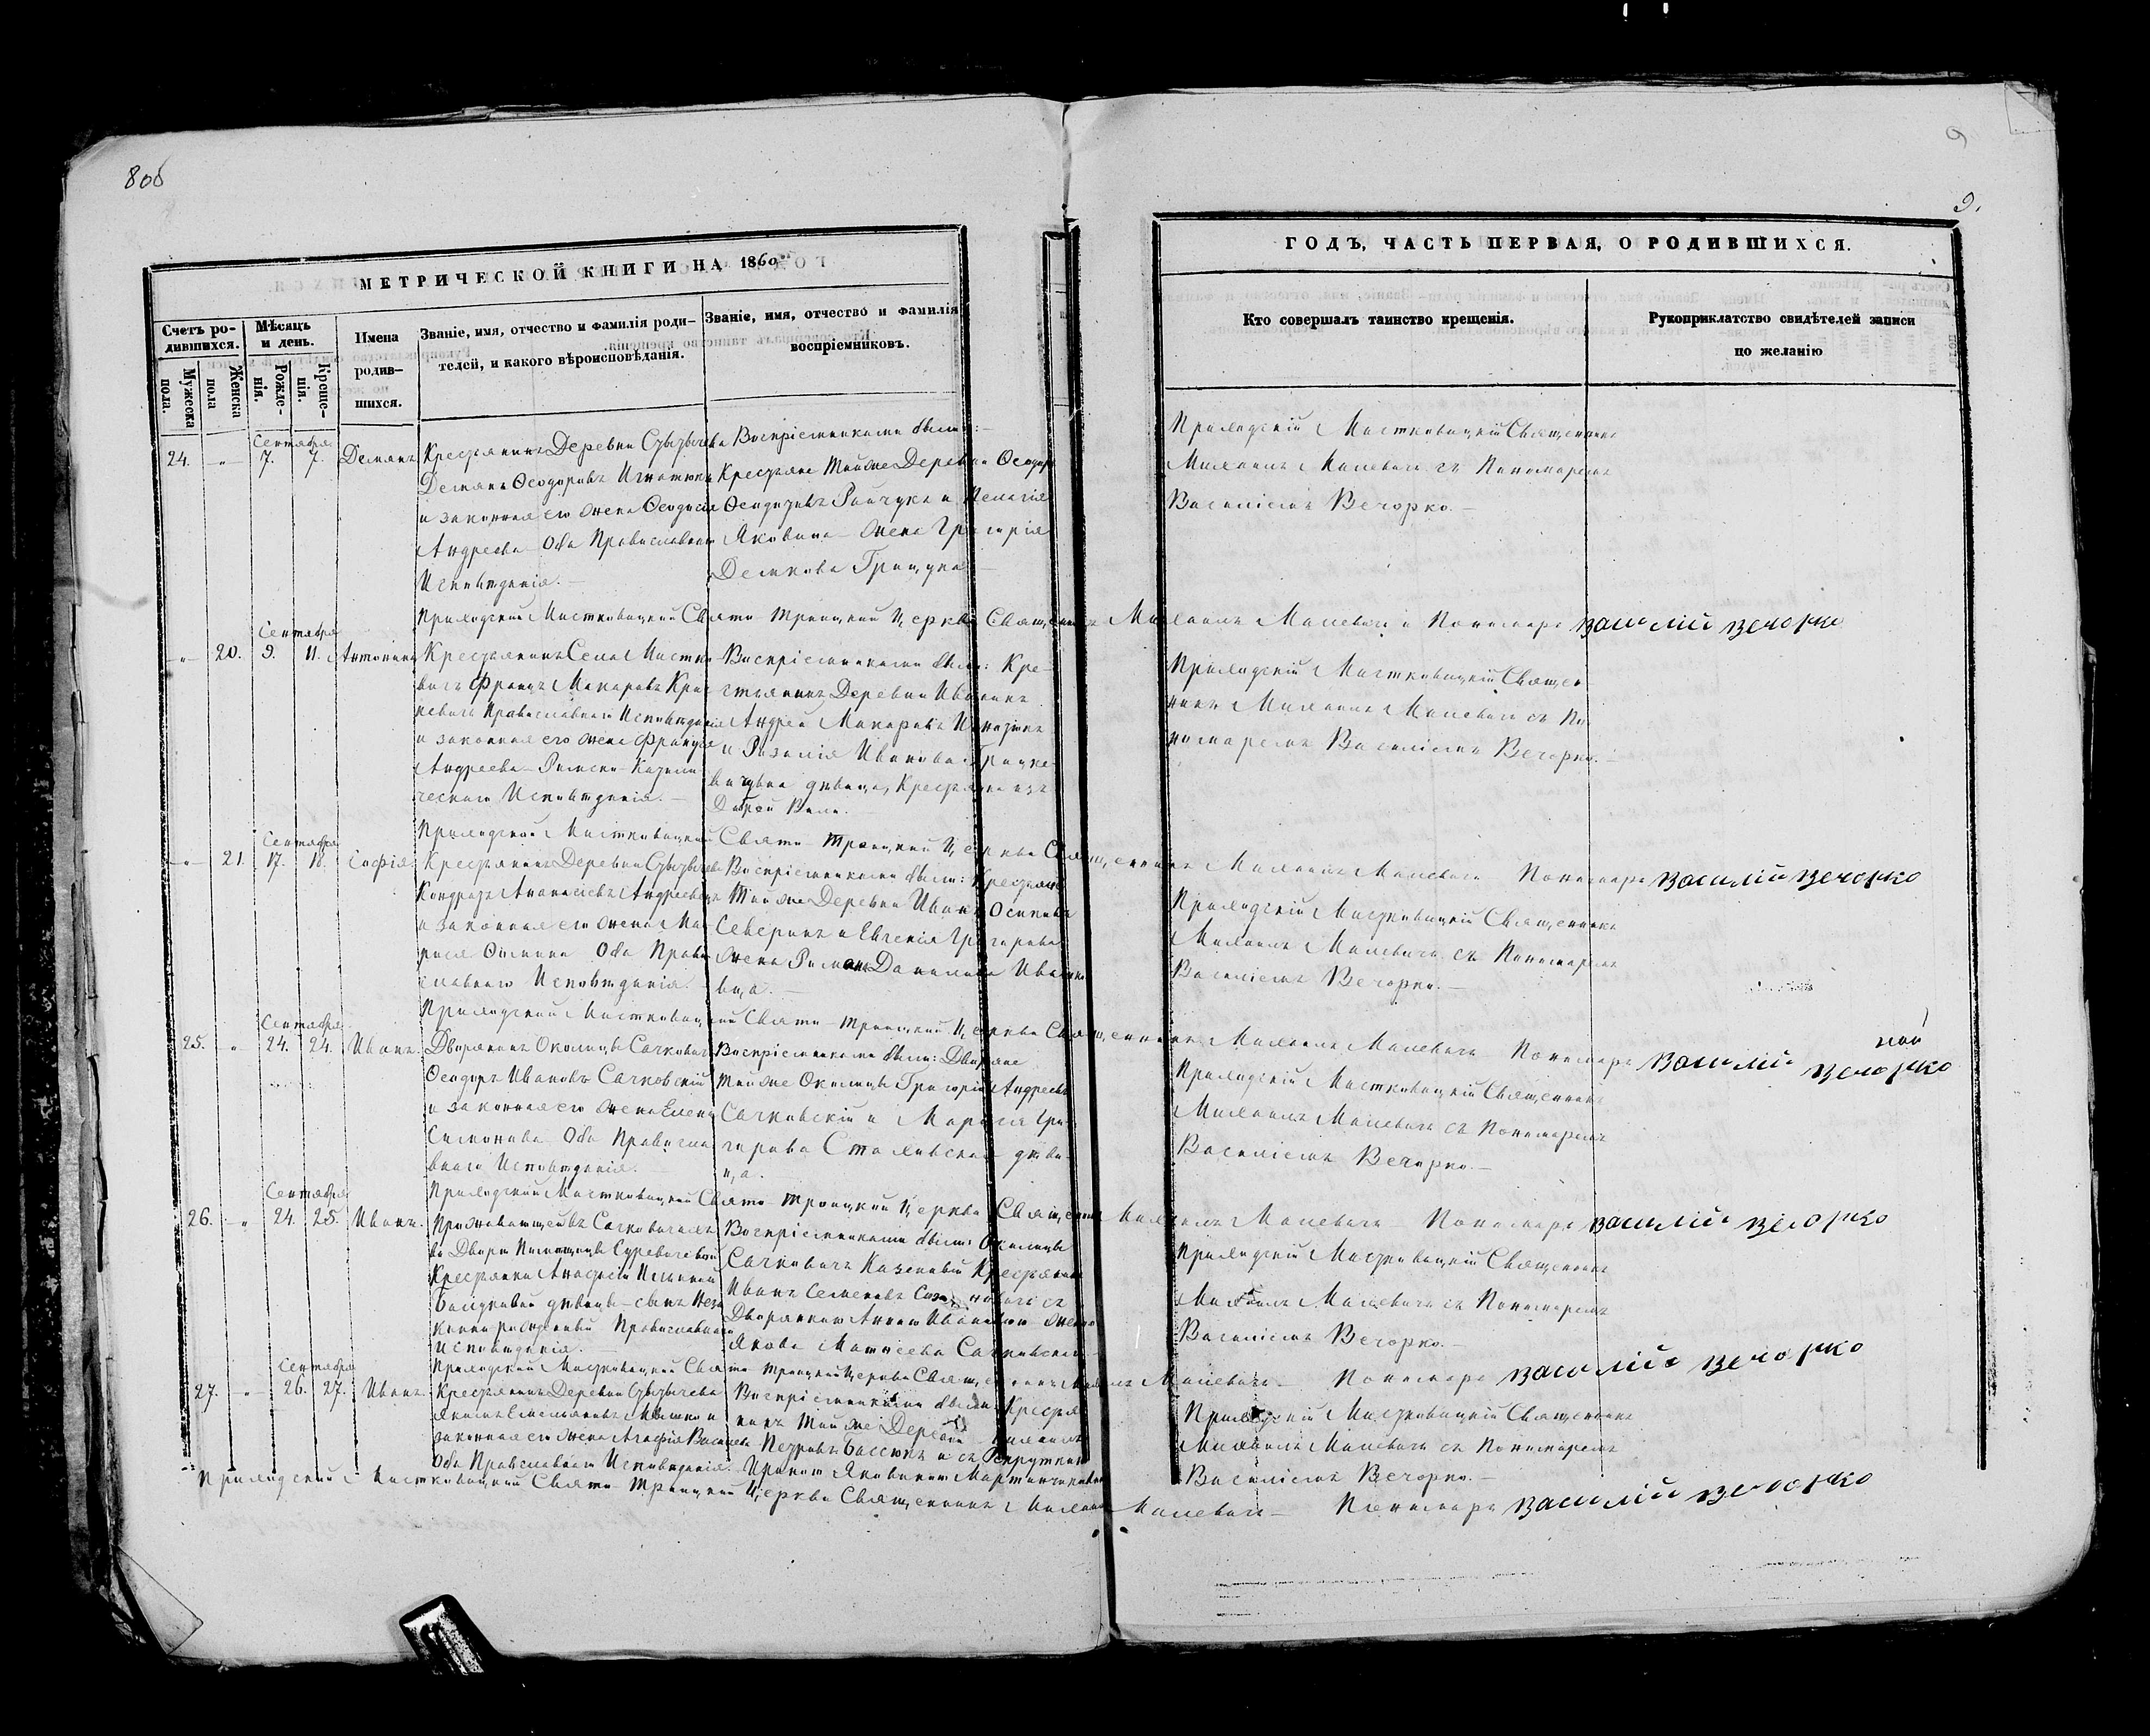 8об
9
9.
МЕТРИЧЕСКОЙ КНИГИ НА 1860
Счетъ ро-
дившихся.
Мѣсяцъ
и день.
Имена
родив-
шихся.
Званіе, имя, отчество и фамилія роди-
телей, и какого вѣроисповѣданія.
Званіе, имя, отчество и фамилія
воспріемниковъ.
Мужеска
пола.
Женска
пола
Рожде-
нія.
Креще-
нія.
ГОДЪ, ЧАСТЬ ПЕРВАЯ, О РОДИВШИХСЯ.
Кто совершалъ таинство крещенія.
Рукоприкладство свидѣтелей записи
по желанію
Сентября
24. 7. 7. Демьянъ
Крестьянинъ Деревни
Демьянъ Ѳеодоровъ
и законная его жена Ѳеодосія
Андреева Оба Православнаго
Исповѣданія.
Воспріемниками были:
Крестьяне Тойже Деревни Ѳеодоръ
и Пелагія
Яковина Жена Григорія
Приходскій Мистковицкій Священникъ
Михаилъ Малевичъ съ Пономаремъ
Василіемъ Вечорко.
Приходской Мистковицкой Свято-Троицкой Церкви Священникъ Михаилъ Малевичъ и Пономаръ Василій Вечорко
Сентября
20. 9. 11. Антонина
Крестьянинъ Села Мистко-
вичъ Францъ Макаровъ
Православнаго Исповѣданія
и законная его жена
Андреева Римско-Католи-
ческаго Исповѣданія.
Воспріемниками были: Кре-
стьянинъ Деревни
Андрей Макаровъ
и Розалія Иванова
дѣвица, Крестьянка изъ
Приходскій Мистковицкій Священ-
никъ Михаилъ Малевичъ съ По-
номаремъ Василіемъ Вечорко.
Приходской Мистковицкой Свято Троицкой Церкви Священникъ Михаилъ Малевичъ Пономаръ Василій Вечорко
Сентября
21. 17. 18. Софія
Крестьянинъ Деревни
Кондратъ
и законная его жена Ма-
Оба Право-
славнаго Исповѣданія.
Воспріемниками были: Крестьяне
Тойже Деревни Иванъ Осиповъ
Северинъ и Евгенія Григорьева
Жена
вица.
Приходскій Мистковицкій Священникъ
Михаилъ Малевичъ съ Пономаремъ
Василіемъ Вечорко.
Приходской Мистковицкой Свято-Троицкой Церкви Священникъ Михаилъ Малевичъ Пономаръ Василій Вечорко
Сентября
25. 24. 24. Иванъ.
Дворянинъ Околицы Сачковичъ
Ѳеодоръ Ивановъ Сачковскій
и законная его жена Елена
Симонова Оба Православ-
наго Исповѣданія.
Воспріемниками были: Дворяне
Тойже Околицы Григорій Андреевъ
Сачковскій и Марія Гри-
горьева дѣви-
ца.
Приходскій Мистковицкій Священникъ
Михаилъ Малевичъ съ Пономаремъ
Василіемъ Вечорко.
Приходской Мистковицкой Свято Троицкой Церкви Священникъ Михаилъ Малевичъ Пономаръ Василій Вечорко
Сентября
26. 24. 25. Иванъ.
Проживающей въ Сачковичахъ
во Дворѣ Помѣщицы
Крестьянки
дѣвицы сынъ Неза-
конно рожденный Православнаго
Исповѣданія.
Воспріемниками были: Околицы
Сачковичъ Казенный Крестьянинъ
Иванъ Семеновъ съ
Дворянкою Анною Ивановою женою
Якова Матѳеева Сачковскаго
Приходскій Мистковицкій Священникъ
Михаилъ Малевичъ съ Пономаремъ
Василіемъ Вечорко.
Приходской Мистковицкой Свято Троицкой Церкви Священникъ Михаилъ Малевичъ Пономаръ Василій Вечорко
Сентября
27. 26. 27. Иванъ.
Крестьянинъ Деревни
и
законная его жена Агафія Васильева
Оба Православнаго Исповѣданія.
Воспріемниками были: Крестья-
нинъ Тойже Деревни Михаилъ
Петровъ и съ Рекруткою
Яковиною
Приходскій Мистковицкій Священникъ
Михаилъ Малевичъ съ Пономаремъ
Василіемъ Вечорко.
Приходской Мистковицкой Свято-Троицкой Церкви Священникъ Михаилъ Малевичъ Пономаръ Василій Вечорко